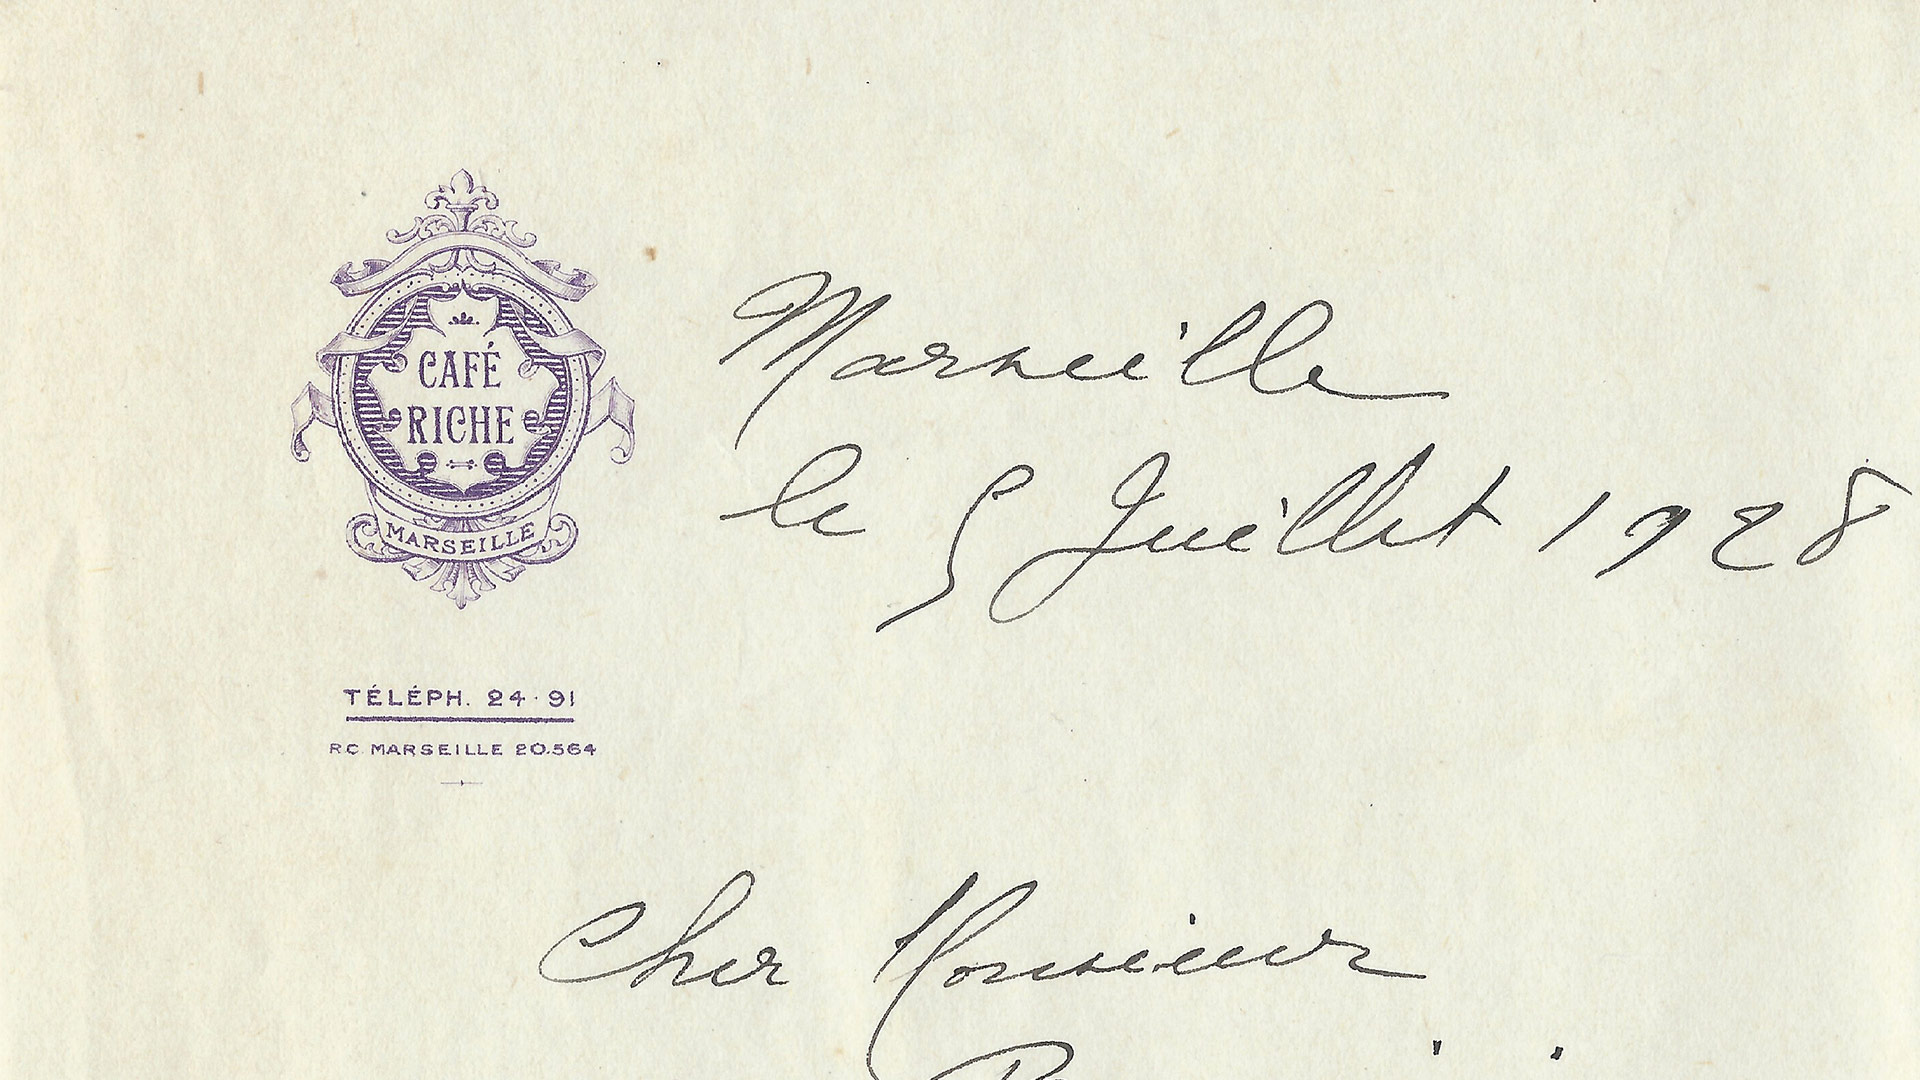 CAFÉ
RICHE
MARSEILLE
TÉLÉPH. 24·91
RC MARSEILLE 20.564
Marseille
le 5 Juillet 1928
Cher Monsieur